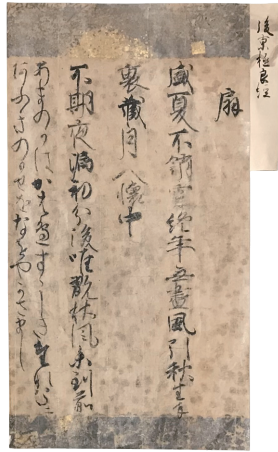 後京極良経
扇
盛夏不銷雪終年無盡風引秋生手
裏藏月入懷中
不期夜漏初分後唯翫秋風未到前
あまのかはかはへすゝしきたなはたに
あふきのかせをなほやかさまし